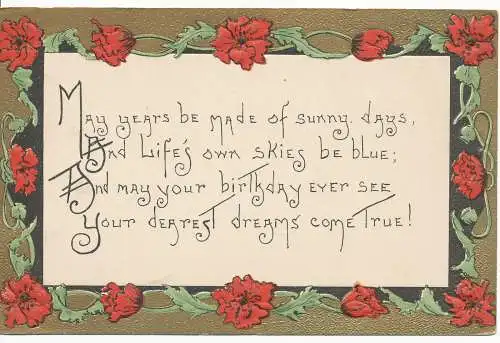 May years be made of sunny days,
And Life's own skies be blue;
And may your birthday ever see
Your dearest dreams come true!